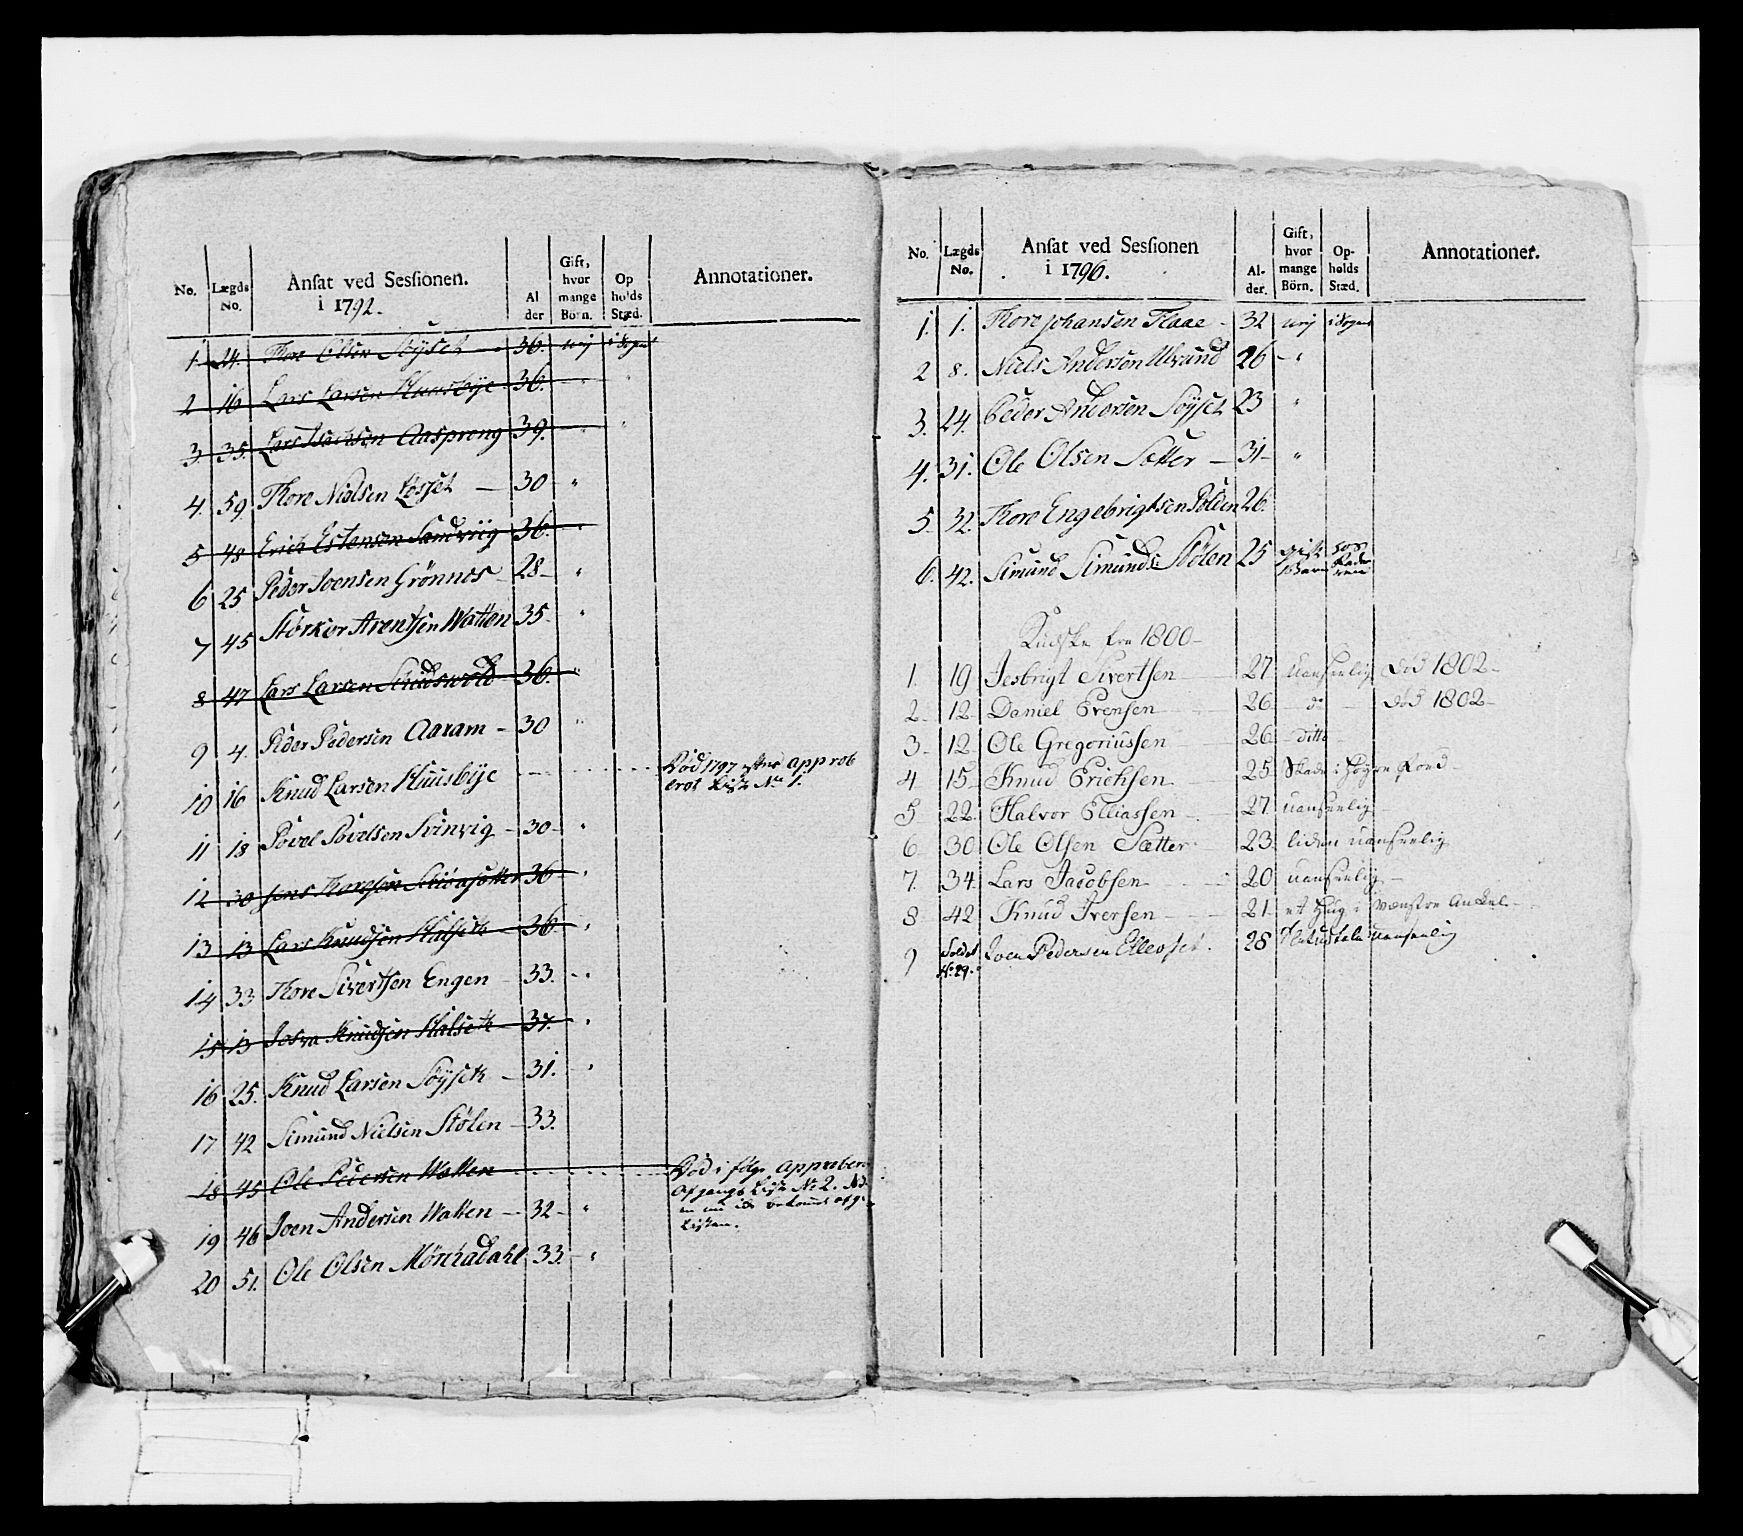 No. Lægds No. Ansat ved Sessionen. i 1792. Al der Gift, hvor mange Börn. Op holds Stæd. Annotationer.
1. 24. Thore Olsen Söyset 36. nej i Sognet
2 16 Lars Larsen Huusbye 36. " "
3. 35. Lars Isachsen Aasprong 39. " "
4. 59. Thore Nielsen Løsset 30 "
5 48 Erich Estensen Sandviig 36. "
6 25 Peder Joensen Grönnes 28 "
7 45 Störker Arentsen Watten 35 "
8 47 Lars Larsen 36. "
9 4. Peder Pedersen Aaram 30 "
10 16 Knud Larsen Huusbye Död 1797 efter approb
eret Liste No 1.
11 18 Povel Povelsen Svinvig 30 "
12 30 Jens Thoresen 36 "
13 13 Lars Knudsen Halseth 36 "
14 33 Thore Sivertsen Engen 33. "
15 13 Knudsen Halseth 37. "
16 25. Knud Larsen Söyseth 31. "
17 42 Simund Nielsen Stölen 33.
18 45 Ole Pedersen Watten Död i fölge approberet
Afgangs Liste No 2.
Listen.
19 46 Joen Andersen Watten 32 "
20 51. Ole Olsen Mörchadahl 33. "
No. Lægds No. Ansat ved Sessionen i 1796. Al- der. Gift, hvor mange Börn. Op- holds Stæd. Annotationer.
1. 1. Thore Johansen Flaae 32 nej i Sognet
2 8. Niels Andersen Ulvund 26 "
3. 24. Peder Andersen Söyset 23 "
4. 31. Ole Olsen Sætter 31 "
5. 32. Thore Engebrigtsen Polden 26.
6. 42. Simund Simunds: Stölen 25 gift
Kudske fra 1800
1. 19 Jesbrigt Sivertsen 27 Uanseelig död 1802
2 12 Daniel Evensen 26 do död 1802
3 12 Ole Gregoriussen 26 ditto
4 15 Knud Erichsen 25 Skade i höyre Foed
5 22 Halvor Elliassen 27 uanseelig
6 30 Ole Olsen Sætter 23 liden uanseelig
7. 34. Lars Jacobsen 20 uanseelig
8 42 Knud Iversen 21 et Hug i venstre Ankel
9 Soldat No 29. Joen Pedersen Ellevset 28 uanseelig